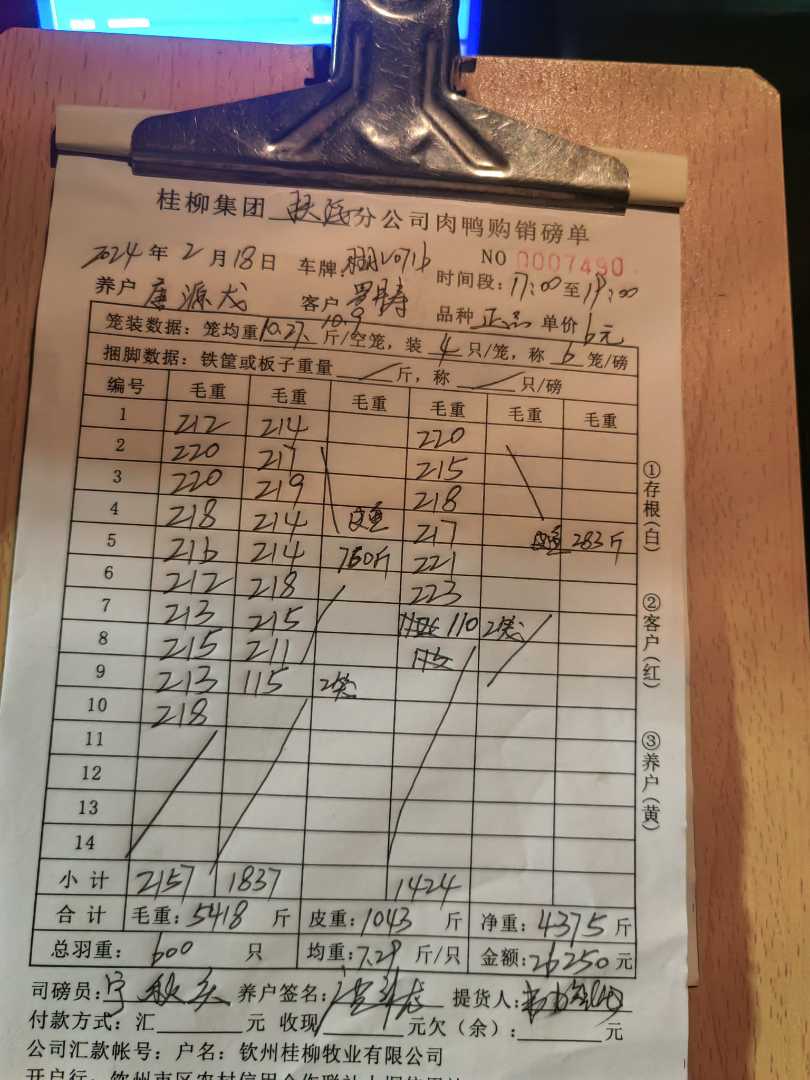 桂柳集团 分公司肉鸭购销磅单
NO 0007490
2024年2月18日 车牌: 时间段:17:00至19:00
养户 唐源龙 客户 品种 正品 单价 6元
10.9
笼装数据:笼均重10.27斤/空笼,装 4 只/笼,称 6 笼/磅
捆脚数据:铁筐或板子重量 斤,称 只/磅
编号 毛重 毛重 毛重 毛重 毛重 毛重
1 212 214 220
2 220 217 215
3 220 219 218
4 218 214 皮重 217 皮重 283斤
5 216 214 760斤 221
6 212 218 223
7 213 215 110 2笼
8 215 211
9 213 115 2笼
10 218
11
12
13
14
小计 2157 1837 1424
合计 毛重:5418 斤 皮重:1043 斤 净重:4375斤
总羽重: 600 只 均重:7.29 斤/只 金额:26250元
司磅员: 养户签名: 提货人:
付款方式:汇 元 收现 元欠(余): 元
公司汇款帐号:户名:钦州桂柳牧业有限公司
①存根(白) ②客户(红) ③养户(黄)